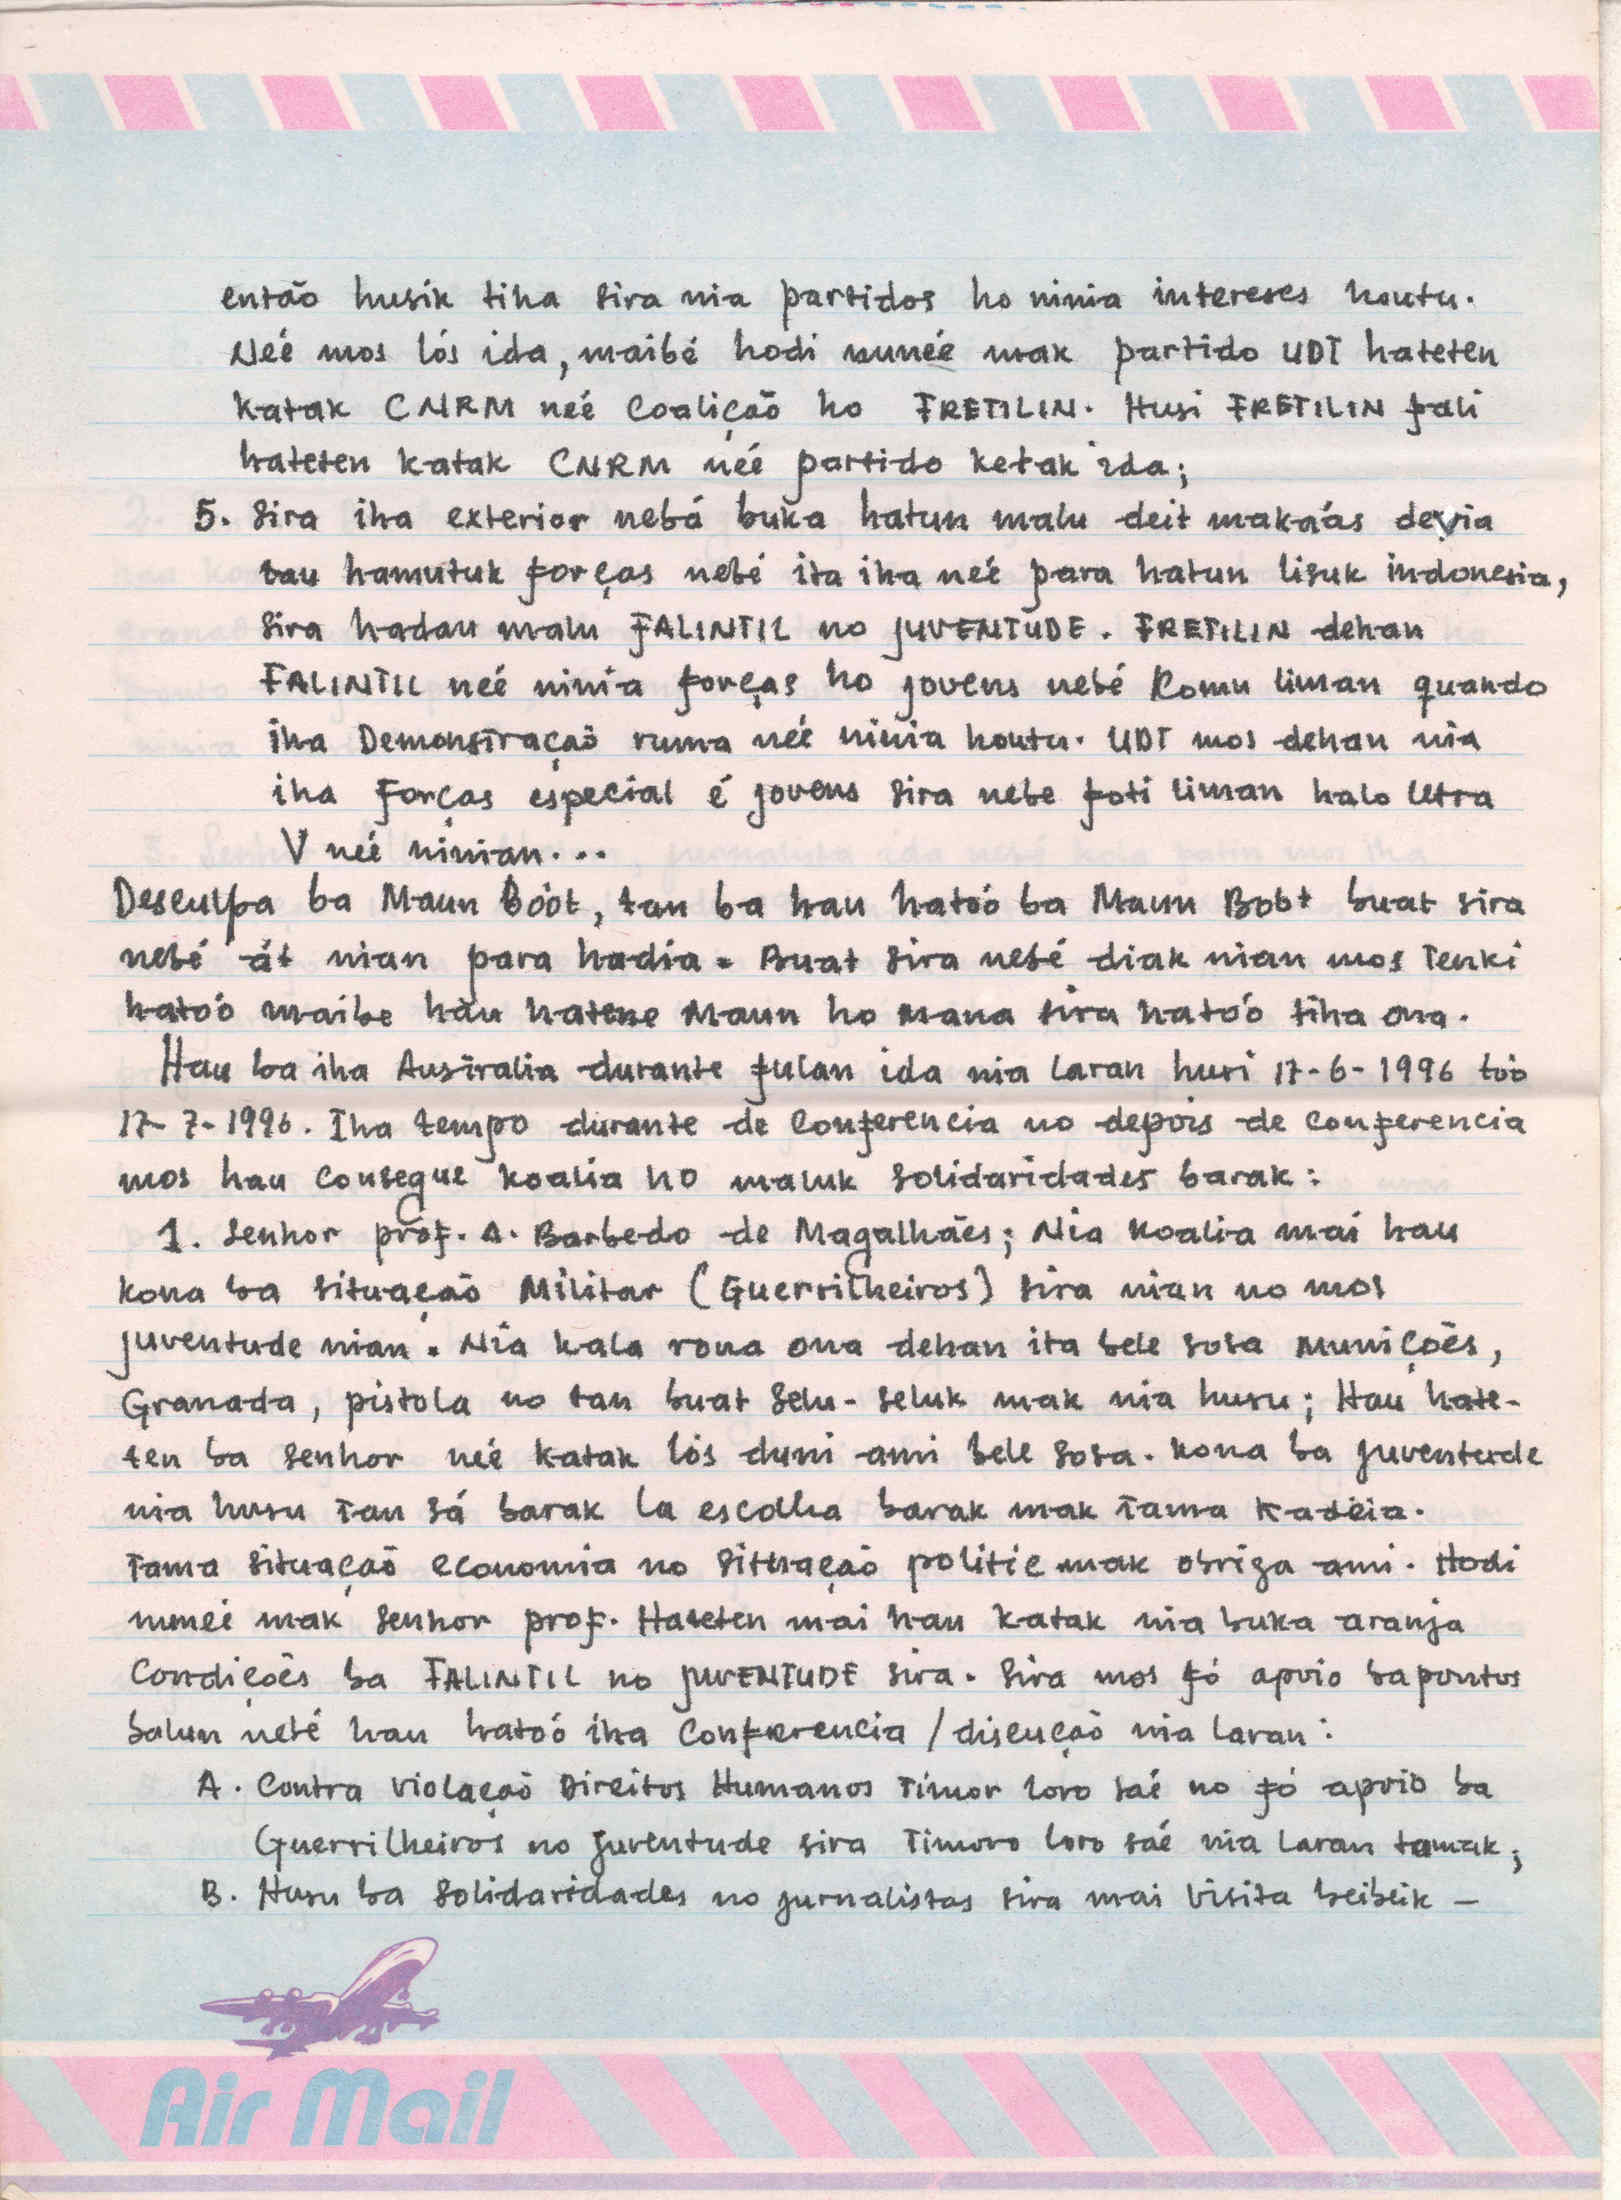 então husik tiha sira nia partidos ho ninia intereses houtu.
Neé mos lós ida, maibé hodi nuneé mak partido UDT hateten
katak CNRM neé Coalição ho FRETILIN. Husi FRETILIN fali
hateten katak CNRM neé partido ketak ida;
5. Sira iha exterior nebá buka hatun malu deit maka'as devia
tau hamutuk forças nebé ita iha neé para hatun lisuk indonesia,
Sira hadau malu FALINTIL no JUVENTUDE. FRETILIN dehan
FALINTIL neé ninia forças ho jovens nebé Komu liman quando
iha Demonstração ruma neé ninia houtu. UDT mos dehan nia
iha Forças especial é jovens sira nebe foti liman halo letra
V neé ninian...
Desculpa ba Maun Boót, tan ba hau hatoó ba Maun Boot buat sira
nebé át nian para hadia. Buat sira nebé diak nian mos Tenki
hatoó maibe hau hatene Maun ho Mana sira hatoó tiha ona.
Hau ba iha Australia durante fulan ida nia laran husi 17-6-1996 toó
17-7-1996. Iha tempo durante de Conferencia no depois de conferencia
mos hau Consegue koalia ho maluk Solidaridades barak:
1. Senhor prof. A. Barbedo de Magalhães; Nia koalia mai hau
kona ba situação Militar (Guerrilheiros) sira nian no mos
juventude nian. Nia kala rona ona dehan ita bele sosa Munições,
Granada, pistola no tan buat Selu-seluk mak nia husu; Hau hate-
ten ba senhor neé katak lós duni ami bele sosa. Kona ba juventude
nia husu Tan sá barak la escolha barak mak Tama Kadeia.
Tama situação economia no situação politic mak obriga ami. Hodi
nuneé mak senhor prof. Hateten mai hau katak nia buka aranja
Condições ba FALINTIL no JUVENTUDE sira. Sira mos fó apoio ba pontos
balun nebé hau hatoó iha Conferencia / discução nia laran:
A. Contra violação Direitos Humanos Timor loro saé no fó apoio ba
Guerrilheiros no juventude sira Timoro loro saé nia laran tamak;
B. Husu ba Solidaridades no jurnalistas sira mai visita beibeik –
Air Mail